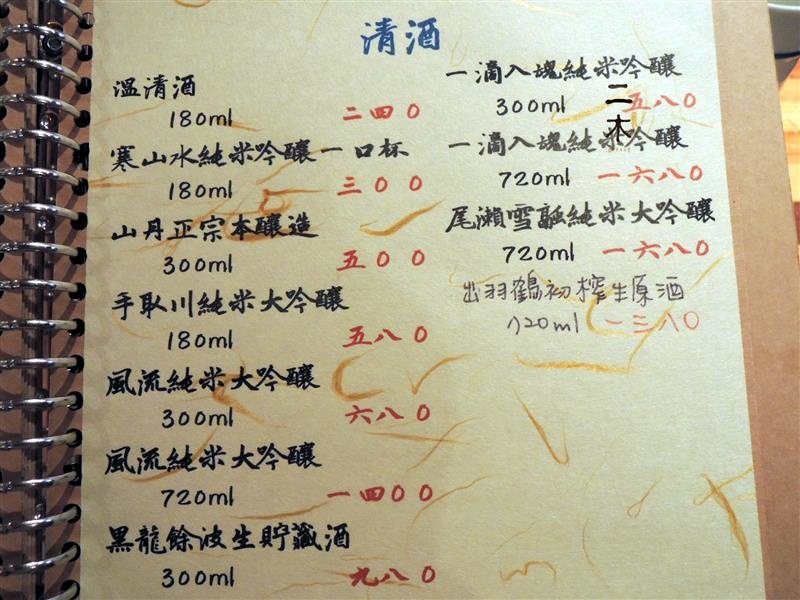 清酒
溫清酒
180ml 二四0
寒山水純米吟釀一口杯
180ml 三00
山丹正宗本釀造
300ml 五00
手取川純米大吟釀
180ml 五八0
風流純米大吟釀
300ml 六八0
風流純米大吟釀
720ml 一四00
黑龍餘波生貯藏酒
300ml 九八0
一滴入魂純米吟釀
300ml 五八0
一滴入魂純米吟釀
720ml 一六八0
尾瀨雪融純米大吟釀
720ml 一六八0
出羽鶴初榨生原酒
720ml 一三八0
二木